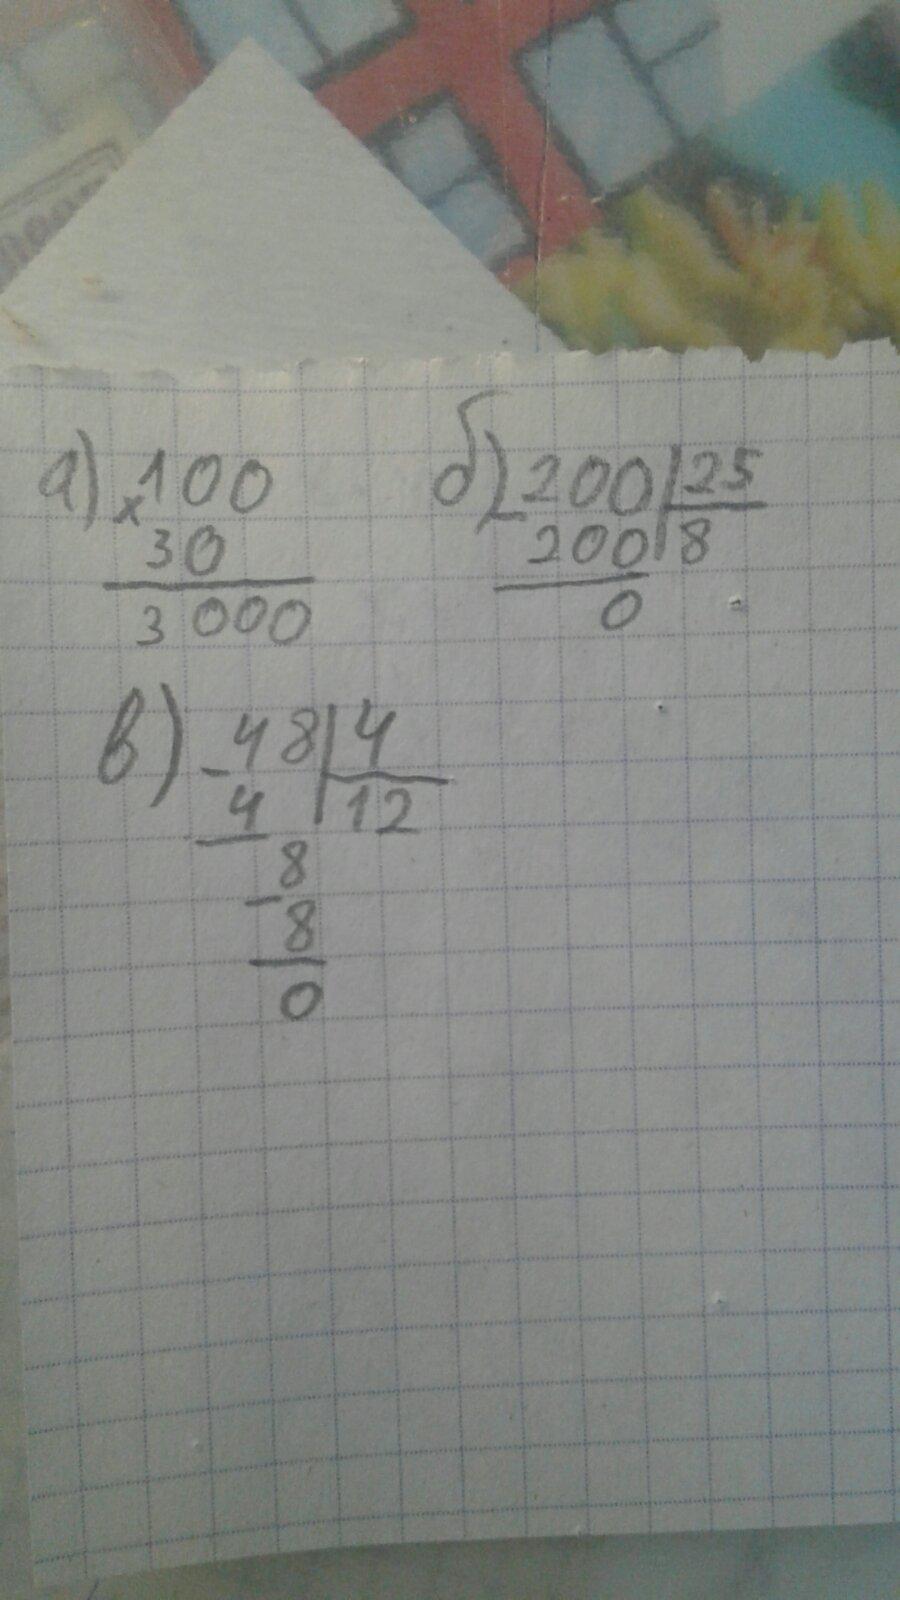 а) ×100
30
3000
б) -200|25
200|8
0
в) -48|4
4|12
8
-8
0